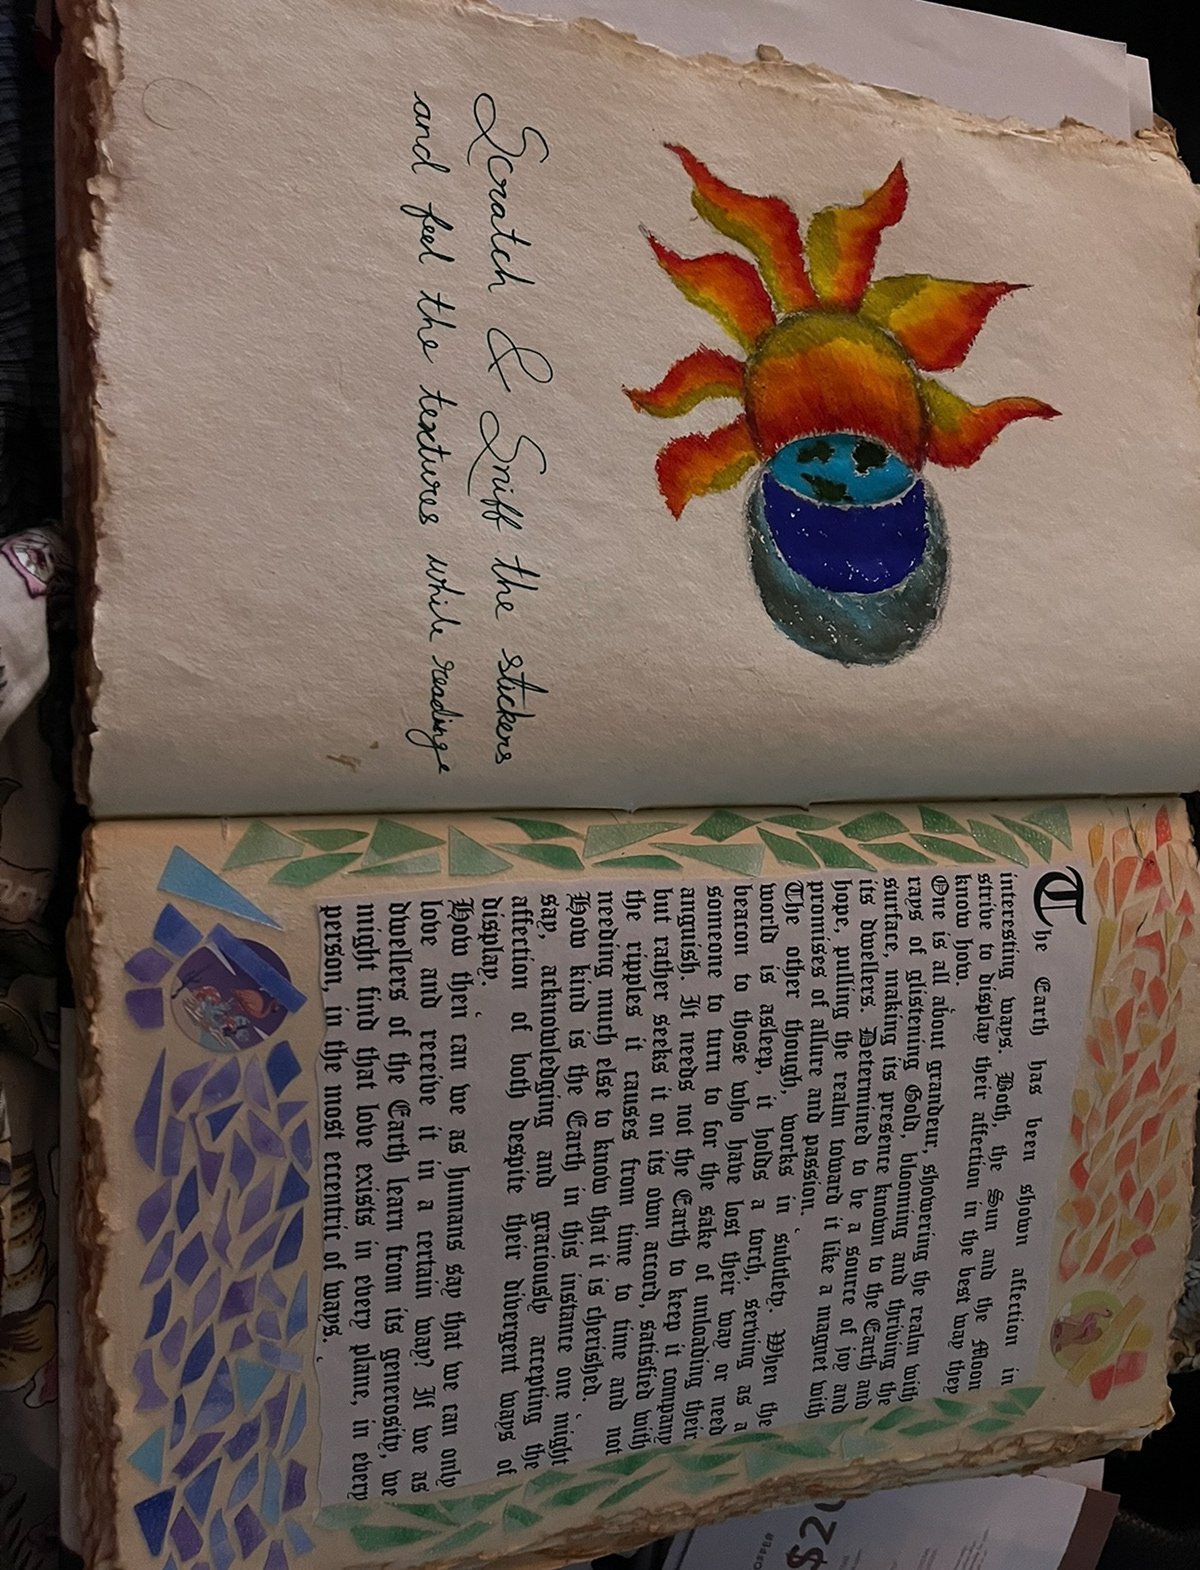 Scratch & Sniff the stickers
and feel the textures while reading
The Earth has been shown affection in
interesting ways. Both, the Sun and the Moon
strive to display their affection in the best way they
know how.
One is all about grandeur, showering the realm with
rays of glistening Gold, blooming and thriving the
surface, making its presence known to the Earth and
its dwellers. Determined to be a source of joy and
hope, pulling the realm toward it like a magnet with
promises of allure and passion.
The other though, works in subtlety. When the
world is asleep, it holds a torch, serving as a
beacon to those who have lost their way or need
someone to turn to for the sake of unloading their
anguish. It needs not the Earth to keep it company
but rather seeks it on its own accord, satisfied with
the ripples it causes from time to time and not
needing much else to know that it is cherished.
How kind is the Earth in this instance one might
say, acknowledging and graciously accepting the
affection of both despite their divergent ways of
display.
How then can we as humans say that we can only
love and receive it in a certain way? If we as
dwellers of the Earth learn from its generosity, we
might find that love exists in every plane, in every
person, in the most eccentric of ways.
OFFER